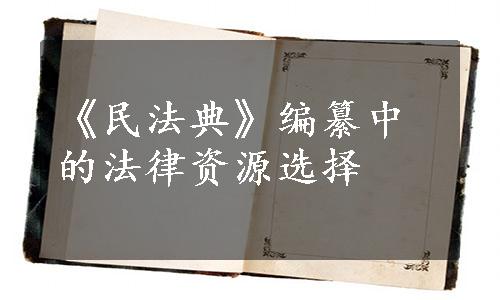 《民法典》编纂中
的法律资源选择